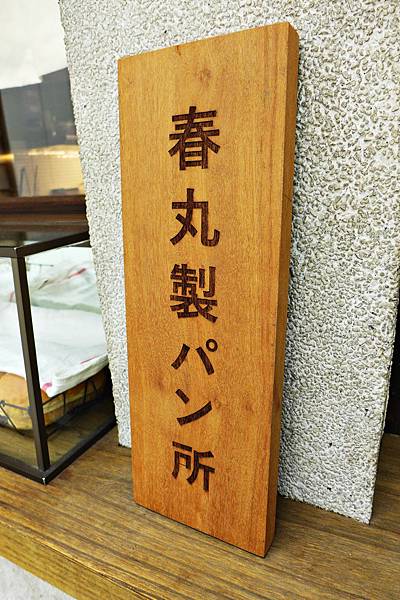 春丸製パン所